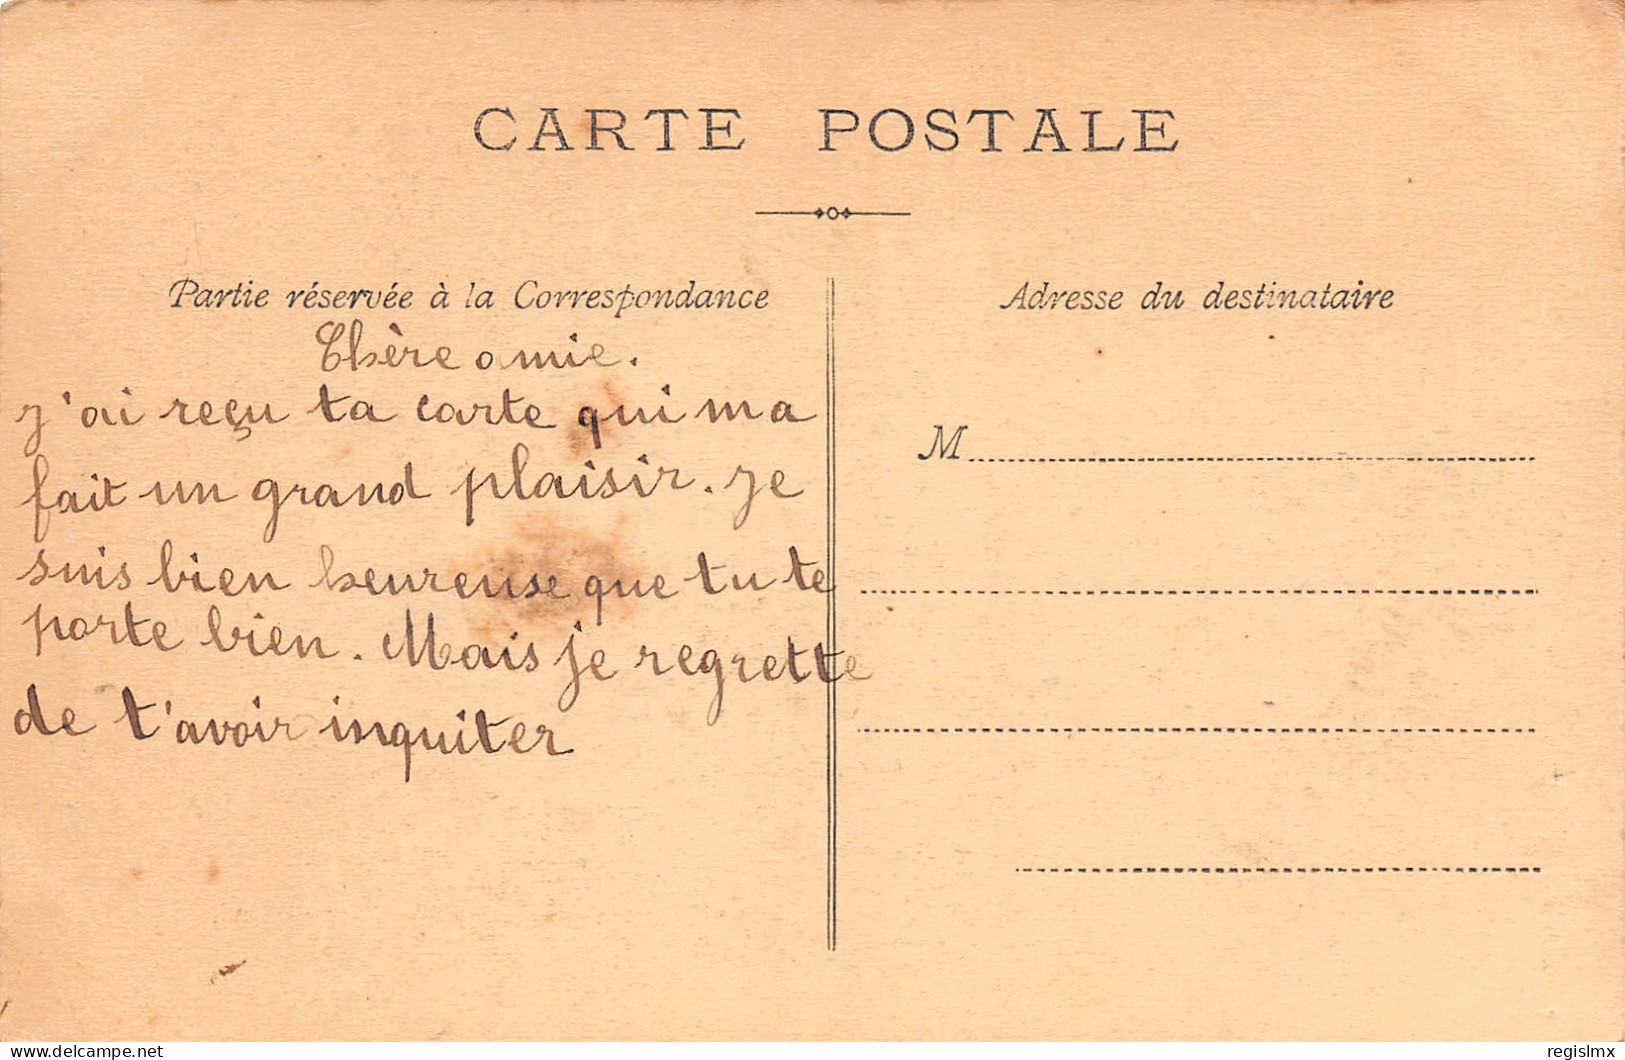 CARTE POSTALE
Partie réservée à la Correspondance
Chère amie.
J'ai reçu ta carte qui ma
fait un grand plaisir. Je
suis bien heureuse que tu te
porte bien. Mais je regrette
de t'avoir inquiter
Adresse du destinataire
M
https://www.delcampe.net
regislmx